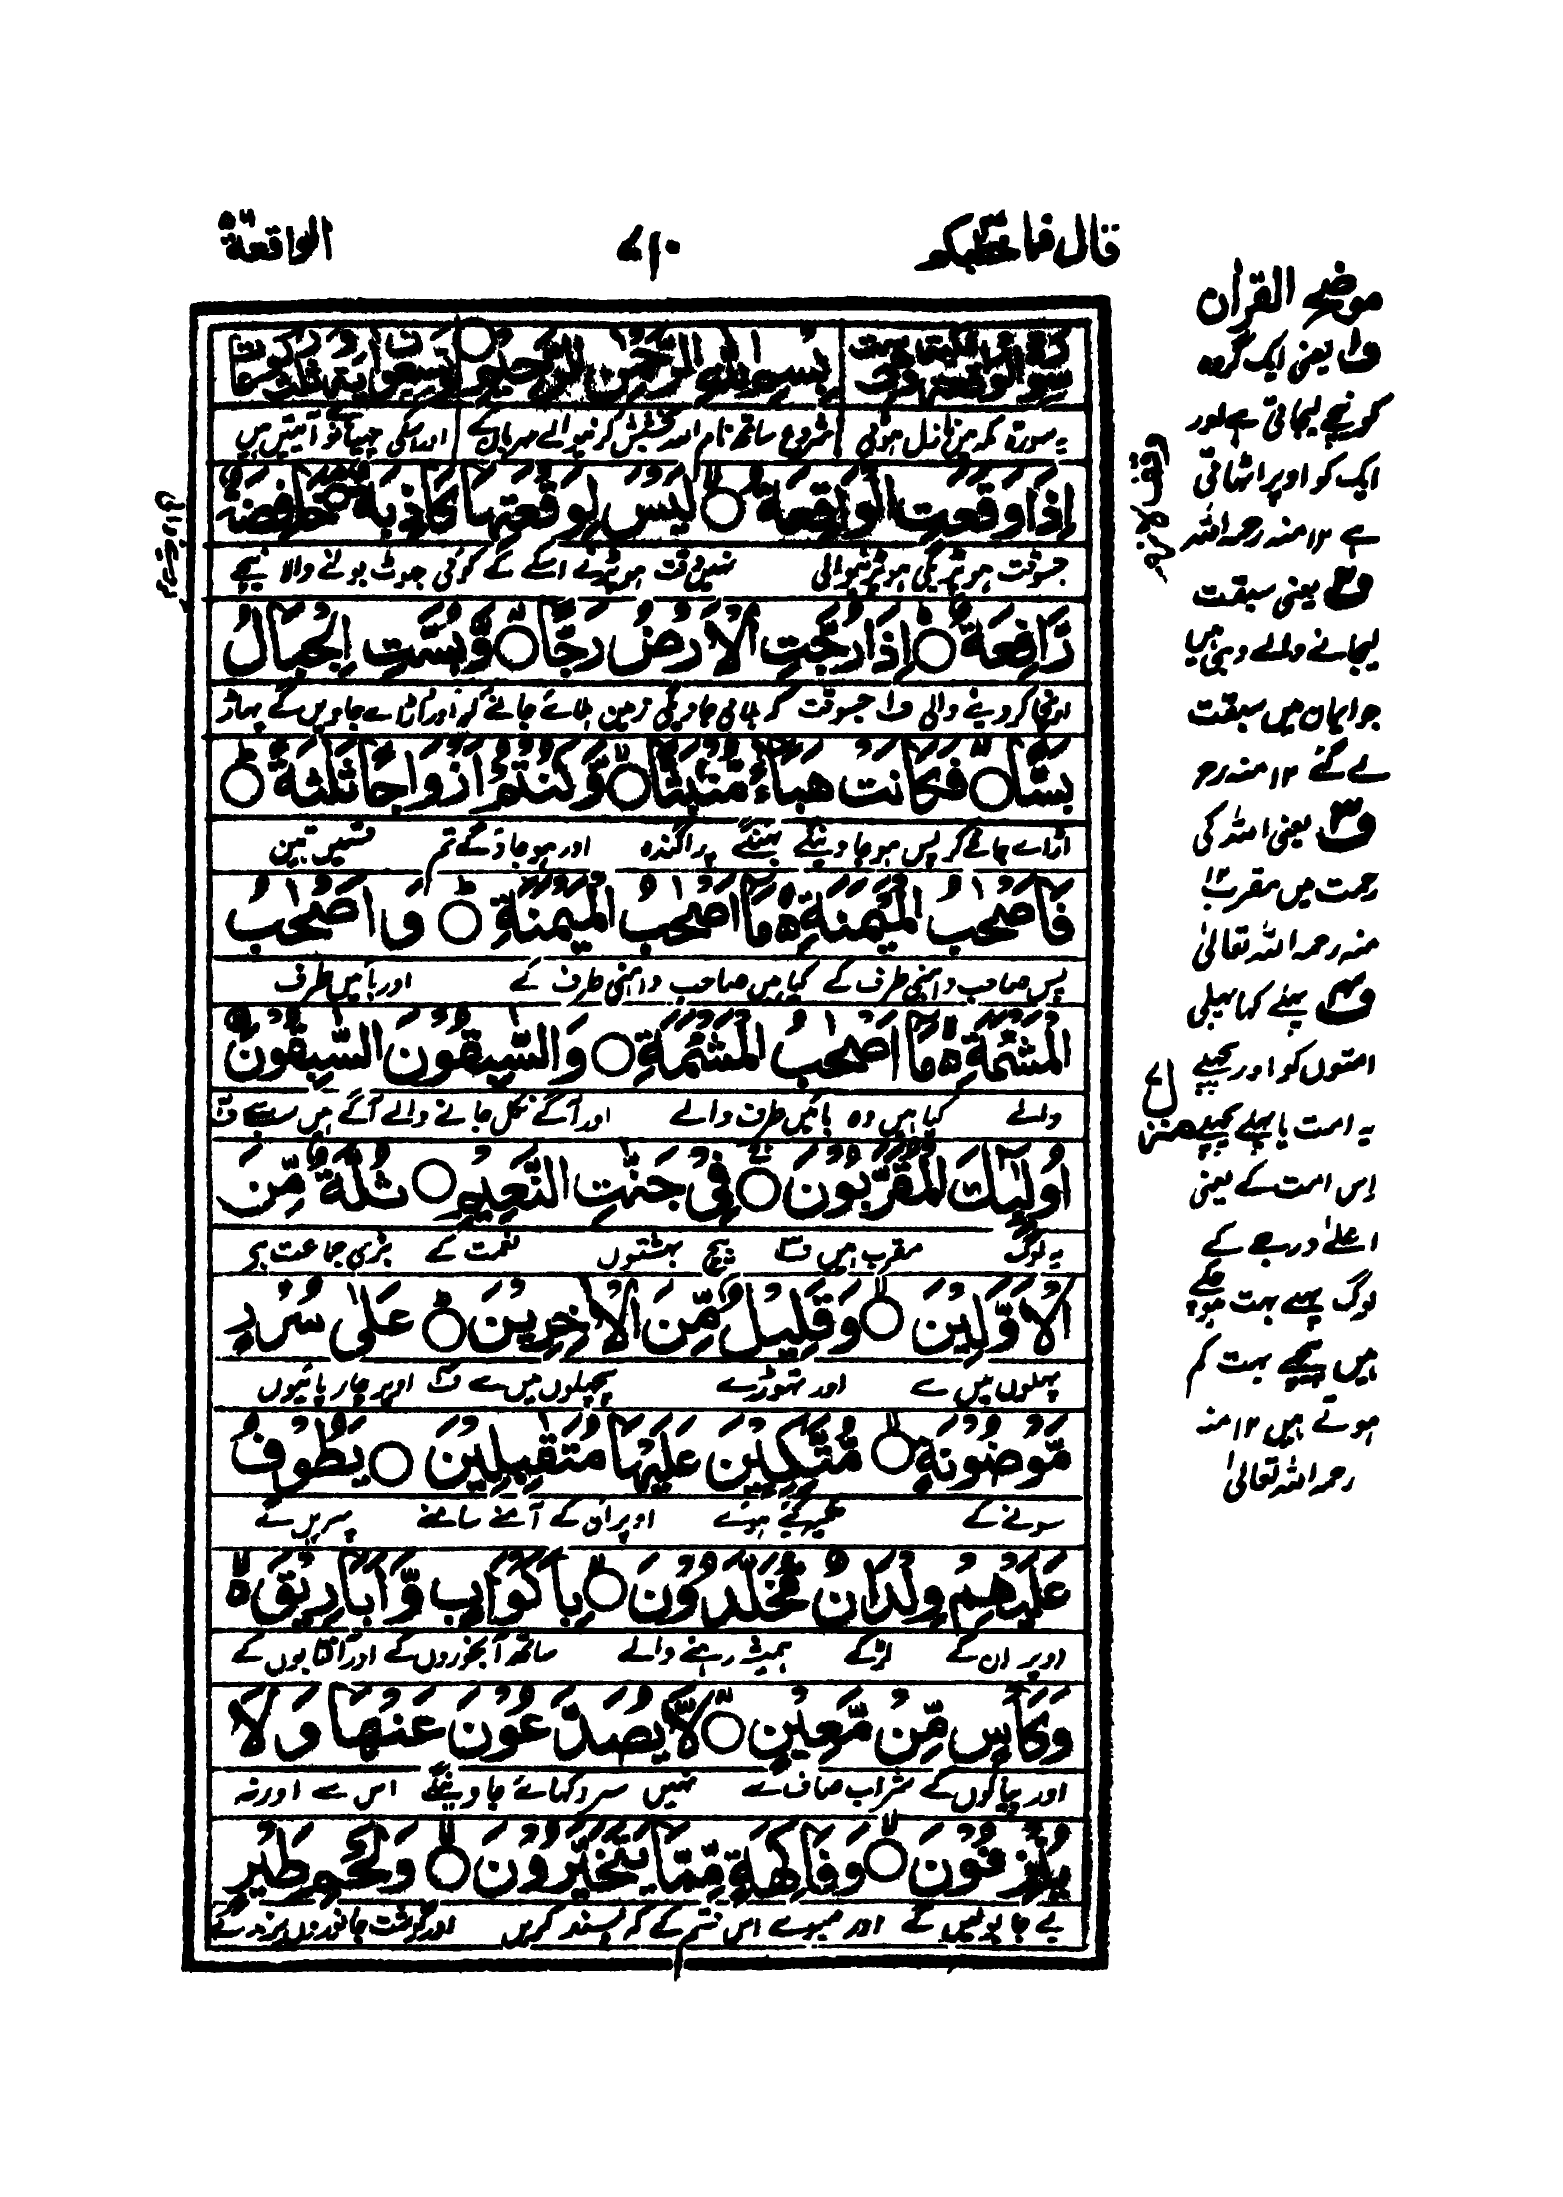 قال فما خطبكم
۷۱۰
الواقعة ۵۶
سورة الواقعة
بسم الله الرحمن الرحيم
یہ سورۃ مکہ میں نازل ہوئی شروع ساتھ نام اللہ بخشش کرنیوالے مہربان کے اور اسکی چھیانوے آیتیں ہیں
إِذَا وَقَعَتِ الْوَاقِعَةُ ۝ لَيْسَ لِوَقْعَتِهَا كَاذِبَةٌ ۝ خَافِضَةٌ
جسوقت ہو پڑیگی ہو پڑنیوالی نہیں وقت ہو پڑنے اسکے کے کوئی جھوٹ بولنے والا نیچے
رَّافِعَةٌ ۝ إِذَا رُجَّتِ الْأَرْضُ رَجًّا ۝ وَّبُسَّتِ الْجِبَالُ
اونچا کر دینے والی ف۱ جسوقت کہ ہلائی جاویگی زمین ہلائے جانے کر اور اڑائے جاویں گے پہاڑ
بَسًّا ۝ فَكَانَتْ هَبَاءً مُّنْبَثًّا ۝ وَّكُنْتُمْ أَزْوَاجًا ثَلٰثَةً ۝
اڑائے جانے کر پس ہو جاوینگے بھنگے پراگندہ اور ہو جاؤ گے تم قسمیں تین
فَأَصْحٰبُ الْمَيْمَنَةِ ۙ مَا أَصْحٰبُ الْمَيْمَنَةِ ۝ وَأَصْحٰبُ
پس صاحب داہنی طرف کے کیا ہیں صاحب داہنی طرف کے اور بائیں طرف
الْمَشْـَٔمَةِ ۙ مَا أَصْحٰبُ الْمَشْـَٔمَةِ ۝ وَالسّٰبِقُونَ السّٰبِقُونَ
والے کیا ہیں وہ بائیں طرف والے اور آگے نکل جانے والے آگے ہیں سب سے ف۲
أُولٰٓئِكَ الْمُقَرَّبُونَ ۝ فِي جَنّٰتِ النَّعِيمِ ۝ ثُلَّةٌ مِّنَ
یہ لوگ مقرب ہیں ف۳ بیچ بہشتوں نعمت کے بڑی جماعت ہی
الْأَوَّلِينَ ۝ وَقَلِيلٌ مِّنَ الْاٰخِرِينَ ۝ عَلٰى سُرُرٍ
پہلوں میں سے اور تھوڑے پچھلوں میں سے ف۴ اوپر چارپائیوں
مَّوْضُونَةٍ ۝ مُّتَّكِـِٕينَ عَلَيْهَا مُتَقٰبِلِينَ ۝ يَطُوفُ
سونے کے تکیہ کئے ہوئے اوپر ان کے آمنے سامنے پھریں گے
عَلَيْهِمْ وِلْدَانٌ مُّخَلَّدُونَ ۝ بِأَكْوَابٍ وَّأَبَارِيقَ ۙ
اوپر ان کے لڑکے ہمیشہ رہنے والے ساتھ آبخوروں کے اور آفتابوں کے
وَكَأْسٍ مِّنْ مَّعِينٍ ۝ لَّا يُصَدَّعُونَ عَنْهَا وَلَا
اور پیالوں کے شراب صاف سے نہیں سر دکھائے جاوینگے اس سے اور نہ
يُنْزِفُونَ ۝ وَفَاكِهَةٍ مِّمَّا يَتَخَيَّرُونَ ۝ وَلَحْمِ طَيْرٍ
بے جا بولیں گے اور میوے اس قسم کے کہ پسند کریں اور گوشت جانوروں پرند سے
موضح القرآن
ف۱ یعنی ایک گروہ
کو نیچے لیجاتی ہے اور
ایک کو اوپر اٹھاتی
ہے ۱۲ منہ رحمہ اللہ
ف۲ یعنی سبقت
لیجانے والے وہی ہیں
جو ایمان میں سبقت
لے گئے ۱۲ منہ رح
ف۳ یعنی اللہ کی
رحمت میں مقرب ۱۲
منہ رحمہ اللہ تعالیٰ
ف۴ پہلے کہا پہلی
امتوں کو اور پچھلے
یہ امت یا پہلے پچھلے
اس امت کے یعنی
اعلیٰ درجے کے
لوگ پہلے بہت ہو چکے
ہیں پیچھے بہت کم
ہوتے ہیں ۱۲ منہ
رحمہ اللہ تعالیٰ
منزل